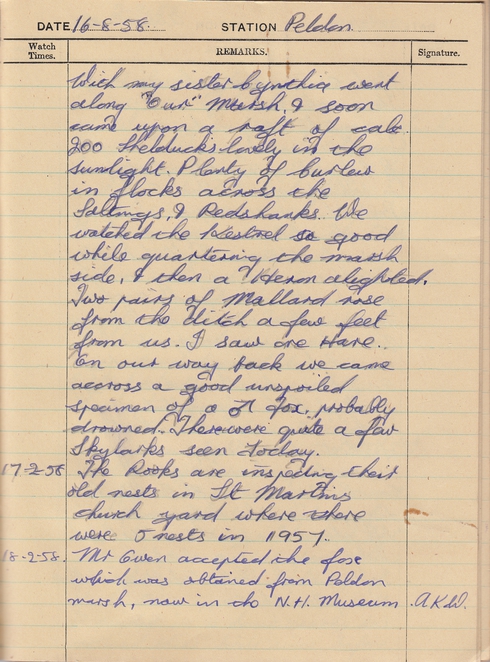 DATE 16-8-58. STATION Peldon
Watch Times. REMARKS. Signature.
With my sister Cynthia went
along "Our" Marsh, & soon
came upon a raft of calc.
200 Shelducks lovely in the
sunlight. Plenty of Curlew
in flocks across the
Saltings, & Redshanks. We
watched the Kestrel so good
while quartering the marsh
side, & then a Heron alighted.
Two pairs of Mallard rose
from the ditch a few feet
from us. I saw one Hare.
On our way back we came
accross a good unspoiled
specimen of a ♂ fox, probably
drowned. There were quite a few
Skylarks seen today.
17-2-58 The Rooks are inspecing their
old nests in St Martins
church yard where there
were 5 nests in 1957.
18-2-58. Mr Gwen accepted the fox
which was obtained from Peldon
marsh, now in the N.H. Museum A.K.W.